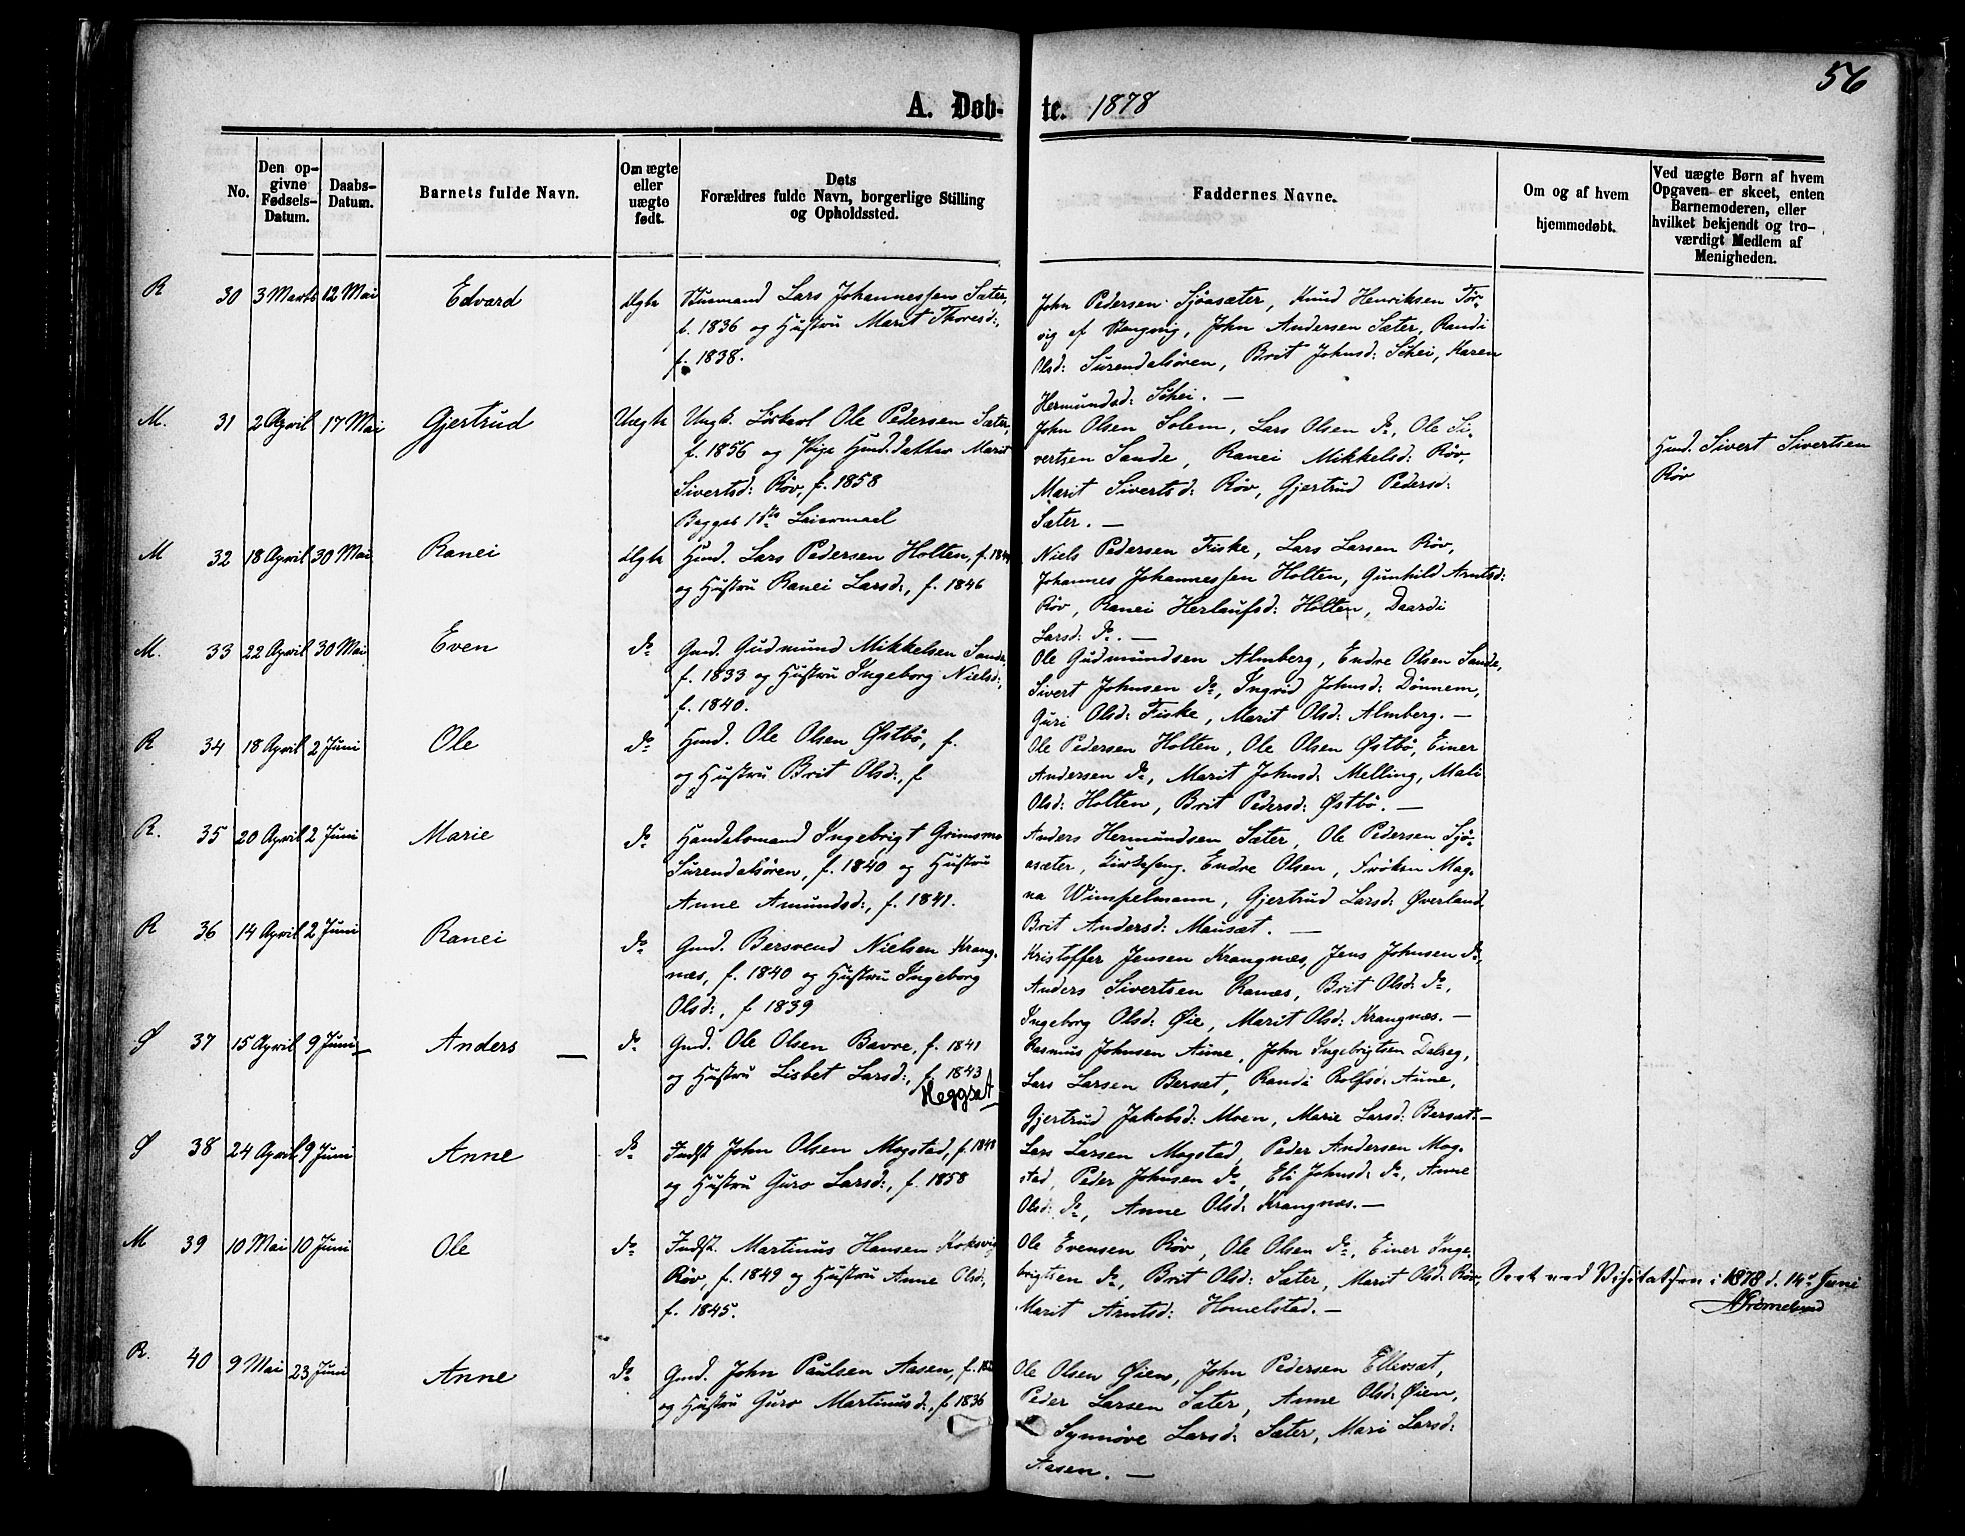 56
A. Døb- te. 1878
No.
Den op-
givne
Fødsels-
Datum.
Daabs-
Datum.
Barnets fulde Navn.
Om ægte
eller
uægte
født.
Dets
Forældres fulde Navn, borgerlige Stilling
og Opholdssted.
Faddernes Navne.
Om og af hvem
hjemmedøbt.
Ved uægte Børn af hvem
Opgaven er skeet, enten
Barnemoderen, eller
hvilket bekjendt og tro-
værdigt Medlem af
Menigheden.
R 30 3 Marts 12 Mai Edvard Ægte
Busmand Lars Johannessen Sæter,
f. 1836 og Hustru Marit Thoresd:,
f. 1838.
John Pedersen Sjøasæter, Knud Henriksen Tør-
vig af Stangvig, John Andersen Sæter, Randi
Olsd: Surendalsøren, Brit Johnsd: Schei, Karen
Hermundsd: Schei. —
M. 31 2 April 17 Mai Gjertrud Uægte
Ungk. Løskarl Ole Pedersen Sæter,
f. 1856 og Pige Gmd. datter Marit
Sivertsd: Røv, f. 1858
Begges 1ste Leiermaal
John Olsen Solem, Lars Olsen do, Ole Si-
vertsen Sande, Ranei Mikkelsd: Røv,
Marit Sivertsd: Røv, Gjertrud Pedersd:
Sæter. —
Gmd. Sivert Sivertsen
Røv
M 32 18 April 30 Mai Ranei Ægte
Gmd. Lars Pedersen Holten, f. 184
og Hustru Ranei Larsd:, f. 1846
Niels Pedersen Fiske, Lars Larsen Røv,
Johannes Johannessen Holten, Gunhild Arntsd:
Røv, Ranei Herlaufsd: Holten, Daardi
Larsd: do. —
M. 33 22 April 30 Mai Even do
Gmd. Gudmund Mikkelsen Sande,
f. 1833 og Hustru Ingeborg Nielsd:,
f. 1840.
Ole Gudmundsen Almberg, Endre Olsen Sande,
Sivert Johnsen do, Ingrid Johnsd: Dønnem,
Guri Olsd: Fiske, Marit Olsd: Almberg. —
R 34 18 April 2 Juni Ole do
Gmd. Ole Olsen Østbø, f.
og Hustru Brit Olsd:, f
Ole Pedersen Holten, Ole Olsen Østbø, Einer
Andersen do, Marit Johnsd: Melling, Mali
Olsd: Holten, Brit Pedersd: Østbø. —
R. 35 20 April 2 Juni Marie do
Handelsmand Ingebrigt Grimsmo
Surendalsøren, f. 1840 og Hustru
Anne Amundsd:, f. 1841.
Anders Hermundsen Sæter, Ole Pedersen Sjø-
asæter, Kirkesang. Endre Olsen, Frøken Mag-
na Wimpelmann, Gjertrud Larsd: Øverland,
Brit Andersd: Mausæt. —
R 36 14 April 2 Juni Ranei do
Gmd. Bersvend Nielsen Krang-
næs, f. 1840 og Hustru Ingeborg
Olsd:, f 1839
Kristoffer Jensen Krangnæs, Jens Johnsen do,
Anders Sivertsen Ranæs, Brit Olsd: do,
Ingeborg Olsd: Øie, Marit Olsd: Krangnæs. —
Ø 37 15 April 9 Juni — Anders — do
Gmd. Ole Olsen Bavre, f. 1841
og Hustru Lisbet Larsd:, f. 1843
Heggset
Rasmus Johnsen Aune, John Ingebrigtsen Dalseg,
Lars Larsen Bersæt, Randi Rolfsd: Aune,
Gjertrud Jakobsd: Moen, Marie Larsd: Bersæt. —
Ø 38 24 April 9 Juni Anne do
Indst John Olsen Mogstad, f. 1848
og Hustru Guro Larsd:, f. 1858
Lars Larsen Mogstad, Peder Andersen Mog-
stad, Peder Johnsen do, Eli Johnsd: do, Anne
Olsd: do, Anne Olsd: Krangnæs. —
M 39 10 Mai 10 Juni Ole do
Indst. Martinus Hansen Koksvig
Røv, f. 1849 og Hustru Anne Olsd:,
f. 1845.
Ole Evensen Røv, Ole Olsen do, Einer Inge-
brigtsen do, Brit Olsd: Sæter, Marit Olsd: Røv,
Marit Arntsd: Homelstad. —
Seet ved Visitatsen i 1878 d. 14de Juni
R. 40 9 Mai 23 Juni Anne do
Gmd. John Paulsen Aasen, f. 18
og Hustru Guro Martinusd:, f 1836
Ole Olsen Øien, John Pedersen Ellevsæt,
Peder Larsen Sæter, Anne Olsd: Øien,
Synnøve Larsd: Sæter, Mari Larsd:
Aasen. —